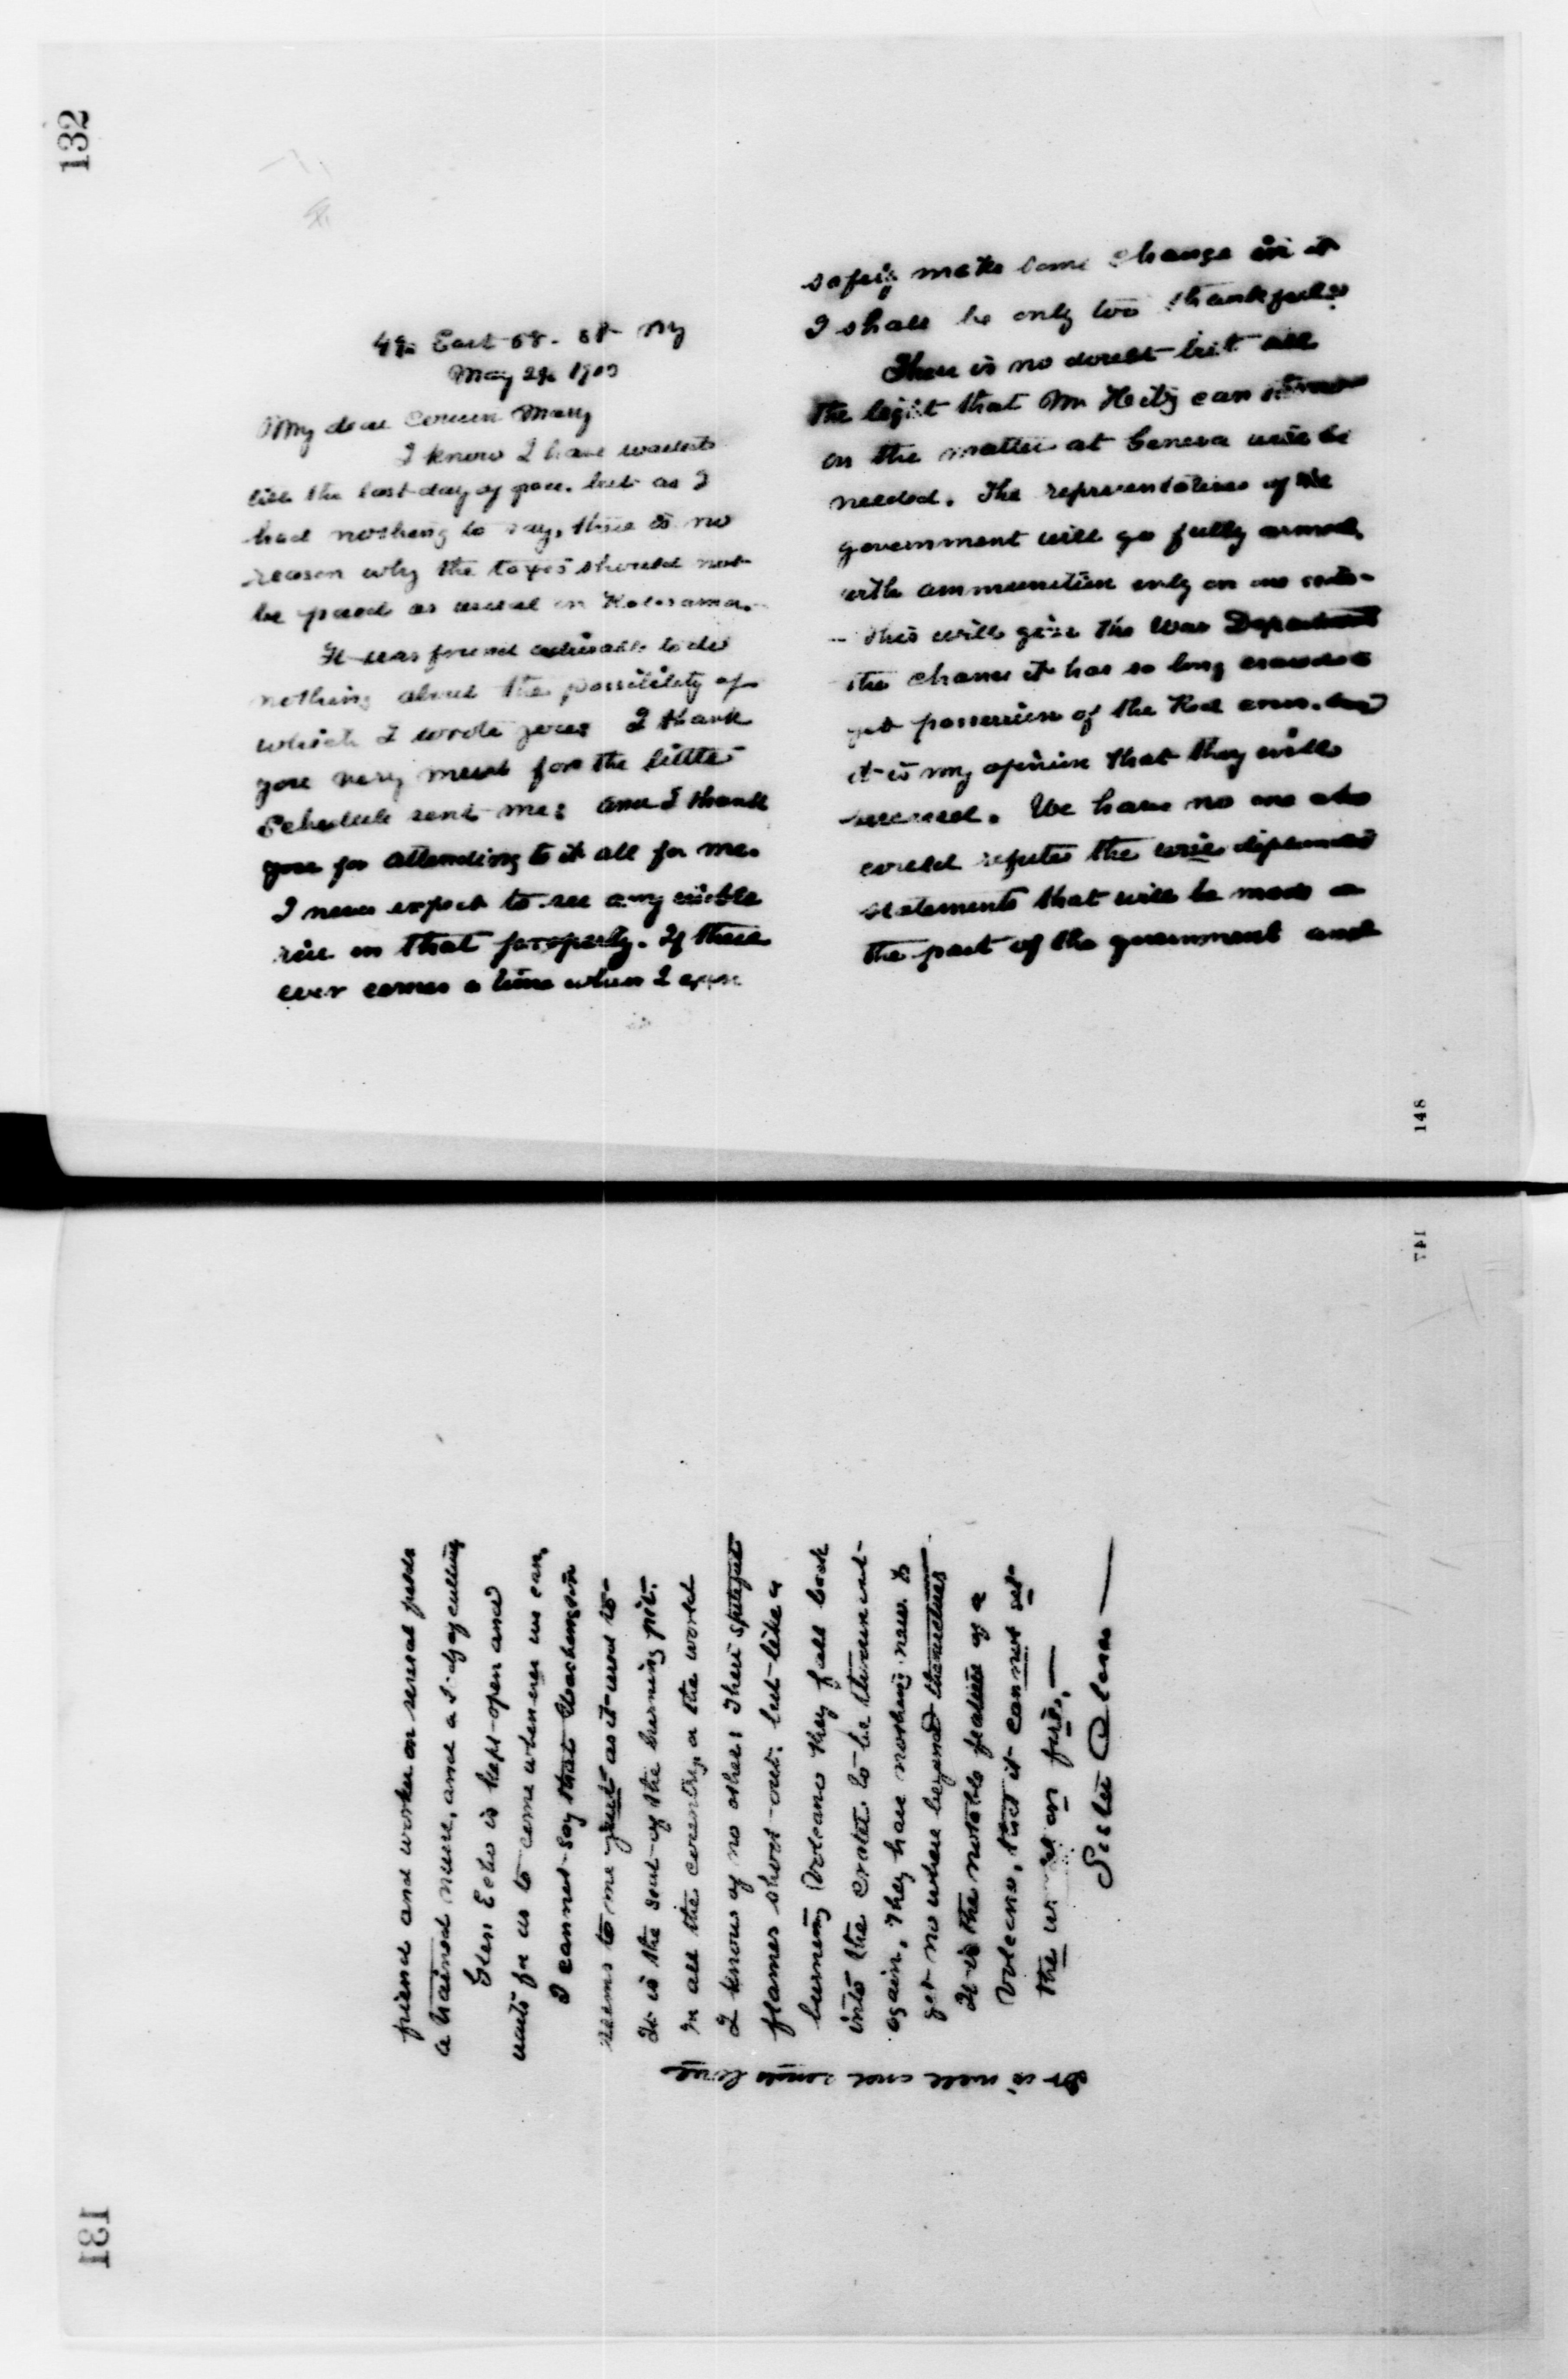 132
49. East 58. St NY
May 29. 1903
My dear Cousin Mary
I know I have waited
till the last day of grace. but as I
had nothing to say, there is no
reason why the taxes should not
be paid as usual in
It was found advisable to do
nothing about the possibility of
which I wrote you; I thank
you very much for the little
schedule sent me; and I thank
you for attending to it all for me.
I never expect to see any visible
rise in that property. If there
ever comes a time when I can
safely make some change in it
I shall be only too thankful.
There is no doubt but all
the light that Mr can throw
on the matter at Geneva will be
needed. The representatives of the
government will go fully armed,
with ammunition only on one side -
this will give the War Department
the chance it has so long
get possession of the Red Cross. and
it is my opinion that they will
succeed. We have no one who
could refute the wise
statements that will be made on
the part of the government and
148
147
friend and worker on several fields
a trained nurse, and a
Glen Echo is kept open and
waits for us to come whenever we can,
I cannot say that Washington
seems to me just as it used to
It is the seat of the burning pit.
In all the country, or the world
I know of no other: Their
flames shoot out. but like a
burning Volcano they fall back
into the crater to be thrown out
again, They have nothing new. to
get no where beyond themselves.
It is the notable feature of a
Volcano, that it cannot set
the world on fire. —
Sister Clara —
It is well and some love
131